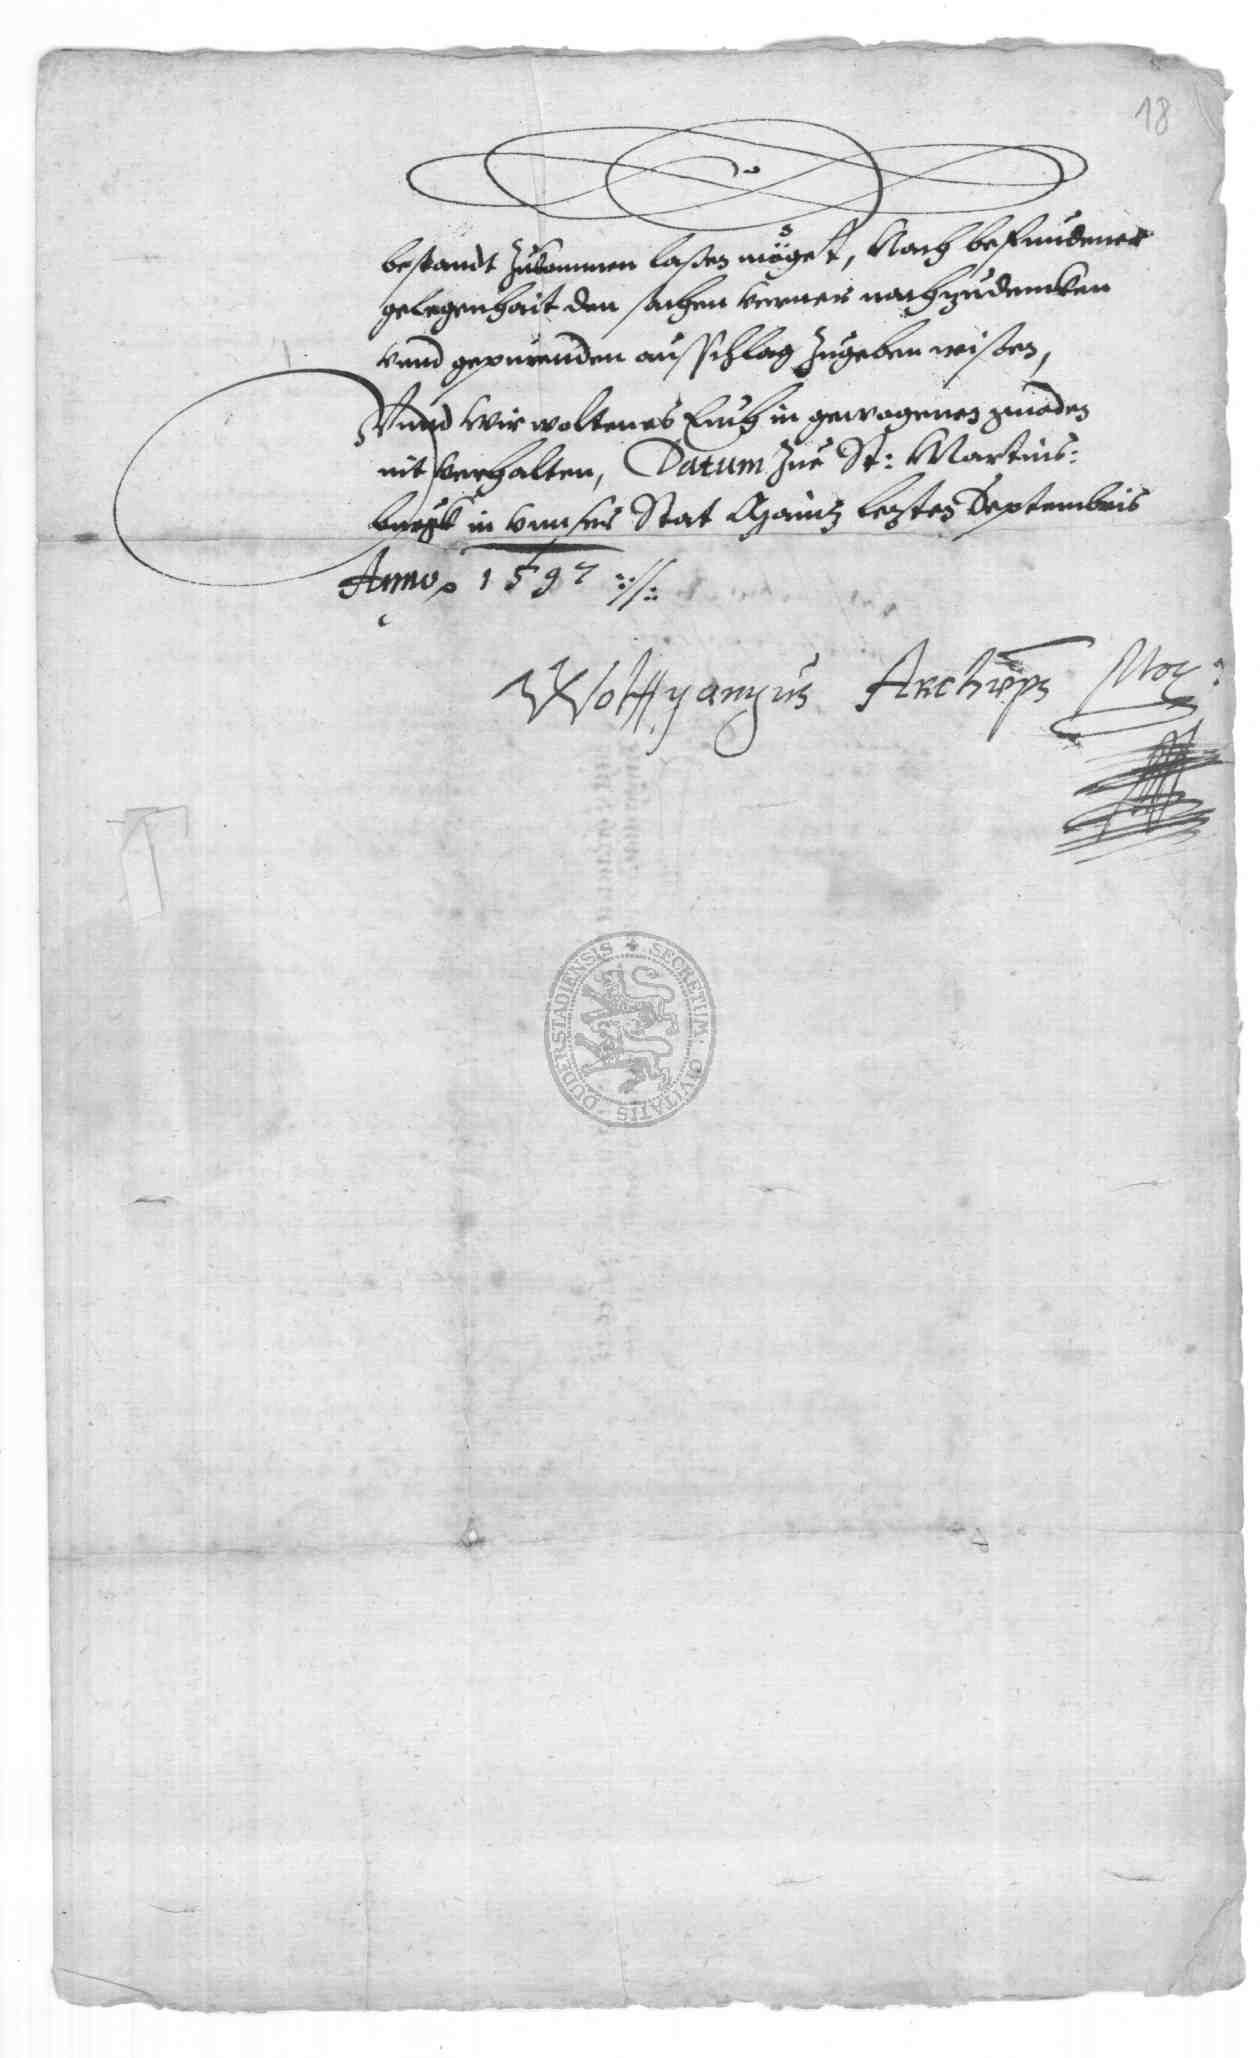 18
bestandt zukommen laßen möget, Nach befundener
gelegenhait den sachen ferner nachzudencken
vnnd gepürenden ausschlag zugeben wißen,
Vnnd wir wolten es Euch in gewogenen gnaden
nit verhalten, Datum Zue St: Martins:
burgk in vnnser Stat Maintz letzten Septembris
Anno 1597
Wolffgangus Archieps Mog:
SECRETUM · CIVITATIS · DUDERSTADIENSIS